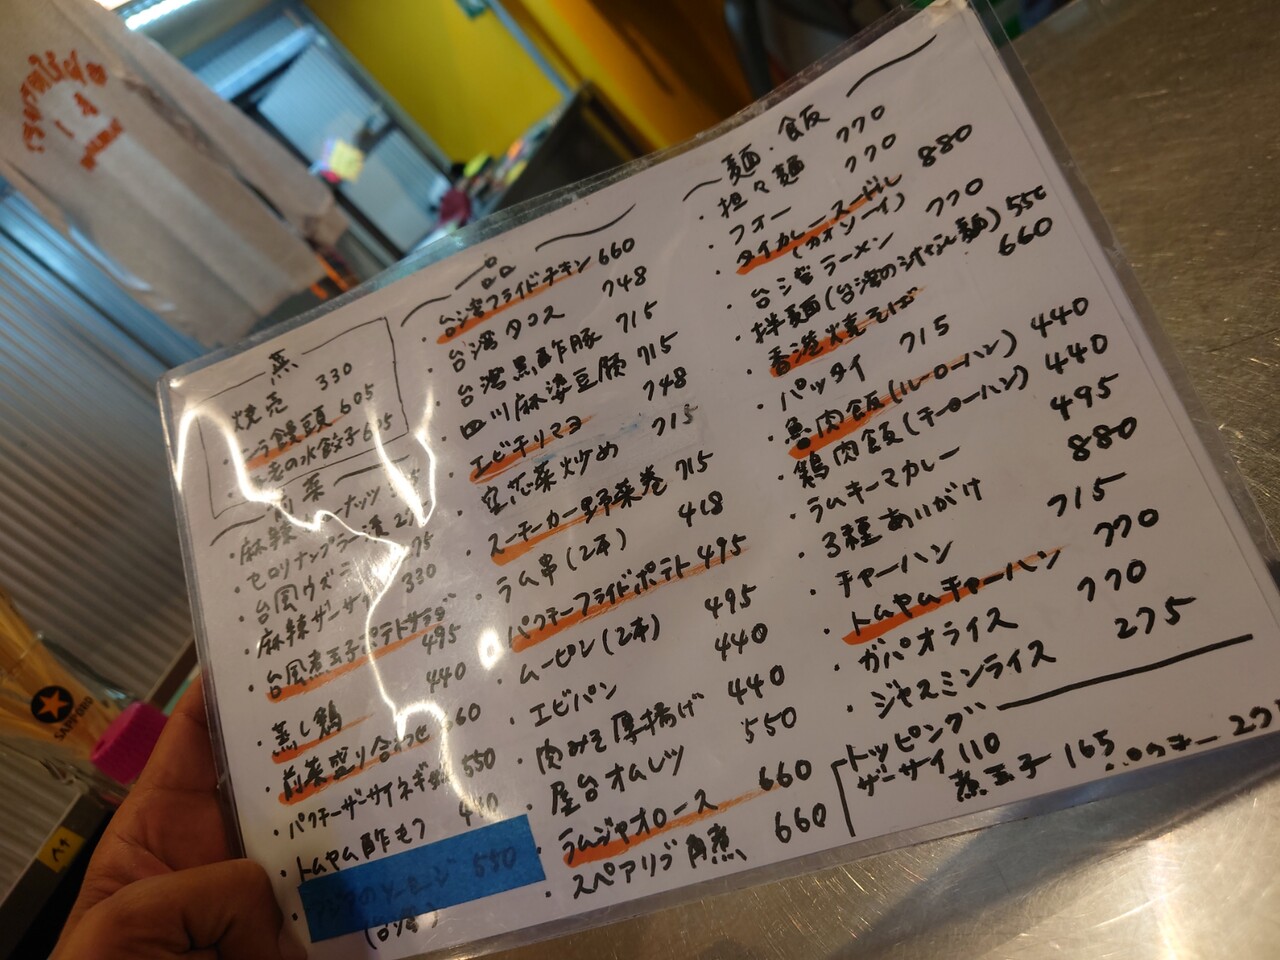 蒸
焼売 330
ニラ饅頭 605
海老の水餃子 605
前菜
・麻辣ピーナッツ
・セロリナンプラー漬
・台風ウズラ
・麻辣ザーサイ 330
・台風煮玉子ポテトサラダ 495
・蒸し鶏 440
・前菜盛り合わせ 660
・パクチーザーサイネギ 550
・トムヤム酢もつ 440
550
(台湾)
一品
・台湾フライドチキン 660
・台湾タコス 748
・台湾黒酢豚 715
・四川麻婆豆腐 715
・エビチリマヨ 748
・空芯菜炒め 715
・スーチーカー野菜巻 715
・ラム串(2本) 418
・パクチーフライドポテト 495
・ムーピン(2本) 495
・エビパン 440
・肉みそ厚揚げ 440
・屋台オムレツ 550
・ラムジャオロース 660
・スペアリブ角煮 660
麺・飯
・担々麺 770
・フォー 770
・タイカレーヌードル 880
(カオソーイ)
・台湾ラーメン 770
・拌麺(台湾の汁なし麺) 550
・香港焼そば 660
・パッタイ 715
・魯肉飯(ルーローハン) 440
・鶏肉飯(チーローハン) 440
・ラムキーマカレー 495
・3種あいがけ 880
・チャーハン 715
・トムヤムチャーハン 770
・ガパオライス 770
・ジャスミンライス 275
トッピング
ザーサイ 110
煮玉子 165
パクチー
SAPPORO